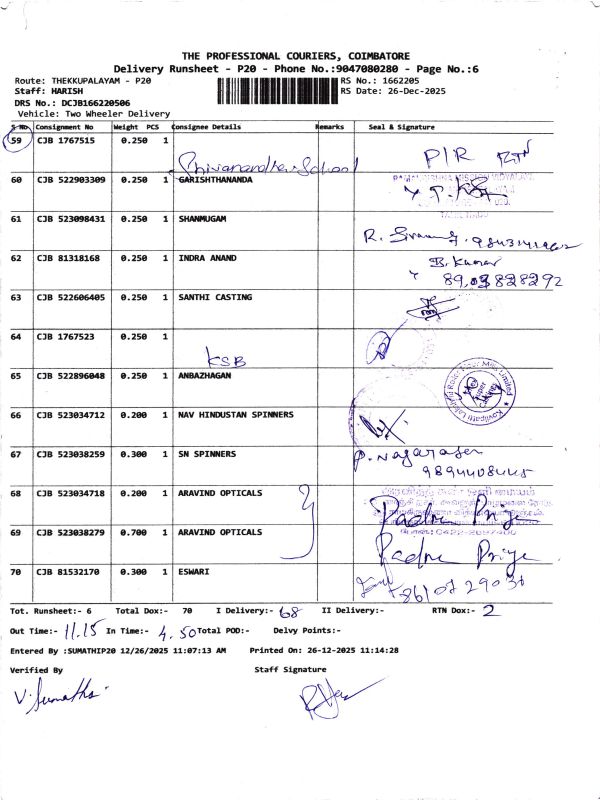 THE PROFESSIONAL COURIERS, COIMBATORE
Delivery Runsheet - P20 - Phone No.:9047080280 - Page No.:6
Route: THEKKUPALAYAM - P20
RS No.: 1662205
Staff: HARISH
RS Date: 26-Dec-2025
DRS No.: DCJB166220506
Vehicle: Two Wheeler Delivery
S No Consignment No Weight PCS Consignee Details Remarks Seal & Signature
59 CJB 1767515 0.250 1 P/R RTN
60 CJB 522903309 0.250 1 GARISHTHANANDA
61 CJB 523098431 0.250 1 SHANMUGAM
62 CJB 81318168 0.250 1 INDRA ANAND B. Kumar
63 CJB 522606405 0.250 1 SANTHI CASTING
64 CJB 1767523 0.250 1
KSB
65 CJB 522896048 0.250 1 ANBAZHAGAN
66 CJB 523034712 0.200 1 NAV HINDUSTAN SPINNERS
67 CJB 523038259 0.300 1 SN SPINNERS P. Nagarajan
68 CJB 523034718 0.200 1 ARAVIND OPTICALS Padma Priya
69 CJB 523038279 0.700 1 ARAVIND OPTICALS Padma Priya
70 CJB 81532170 0.300 1 ESWARI
Tot. Runsheet:- 6 Total Dox:- 70 I Delivery:- 68 II Delivery:- RTN Dox:- 2
Out Time:- 11.15 In Time:- 4.50 Total POD:- Delvy Points:-
Entered By :SUMATHIP20 12/26/2025 11:07:13 AM Printed On: 26-12-2025 11:14:28
Verified By Staff Signature
V. Sumathi